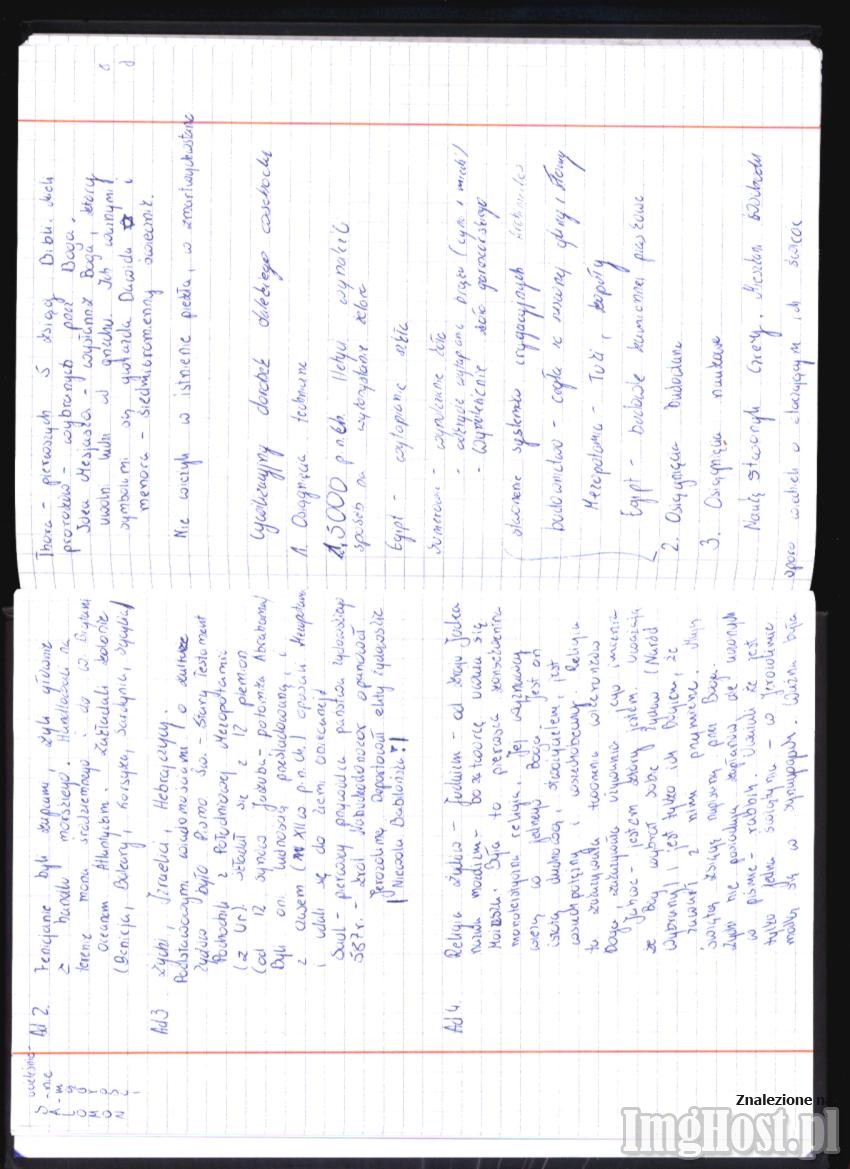 Ad 2. Fenicjanie byli kupcami, żyli głównie
z handlu morskiego. Handlowali na
terenie morza śródziemnego i do W. Brytani
oceanem Atlantyckim. Zakładali kolonie
(Genicja, Baleary, Korsyka, Sardynia, Sycylia)
SALOMON
Ad 3 Żydzi, Izraelici, Hebrajczycy.
Podstawowym wiadomościami o kulturze
żydów było Pismo Św. - Stary Testament
Pochodzili z Południowej Mezopotamii
(z Ur). składał się z 12 plemion
(od 12 synów Jakuba - potomka Abrahama)
Byli oni ludnością prześladowaną, i
z czasem (XII w p.n.e.) opuścili Mezopotam
i udali się do ziemi obiecanej
Saul - pierwszy przywódca państwa żydowskiego
587 r. - król Nabuchodonozor opanował
Jerozolimę deportował elity żydowskie
Niewola Babilońska!
Ad 4. Religia żydów - Judaizm - od kraju Judea
nauka moralizm - bóstwowe
Mojżesz. Była to pierwsza
monoteistyczna religia. Jej wyznawcy
wierzą w jednego Boga. Jest on
istotą duchową, stworzycielem, jest
wszechpotężny i wszechobecny. Religia
ta zakazywała tworzenia wizerunków
Boga zakazywała używania jego imienia
Jahwe - jestem który jestem. Uważają
że Bóg wybrał sobie żydów (Naród
Wybrany) i jest tylko ich Bogiem, że
zawarł z nimi przymierze. Mają
świętą księgę napisaną przez Boga.
żydzi nie posiadają kapłanów ale uczonych
w piśmie - rabbich. Uważali że jest
tylko jedna świątynia - w Jerozolimie
modlą się w synagogach. Ważna była
Thora - pierwszych 5 ksiąg Bibli. dich
proroków - wybranych przez Boga.
Idea Mesjasza - wysłannik Boga, który
uwolni ludzi od grzechu. Ich ważnymi
symbolami są gwiazda Dawida ✡ i
menora - siedmioramienny świecznik.
Nie wierzyli w istnienie piekła, w zmartwychwstanie
Cywilizacyjny dorobek dalekiego wschodu
1. Osiągnięcia techniczne
1,5000 p.n.e. Hetyci wynaleźli
sposób na wykorzystanie żelaza
Egipt - wytapianie szkła
Sumerowie - wynalezienie koła
- odkrycie wytapiania brązu (cyna i miedź)
- Wynalezienie koła garncarskiego
stworzenie systemów irygacyjnych
budownictwo - cegła ze suszonej gliny i słomy
Mezopotamia - Łuki, kopuły
Egipt - budowle kamienne, piaskowe
2. Osiągnięcia Budowlane
3. Osiągnięcia naukowe
Naukę stworzyli Grecy. Mieszkańcy Wschodu
sporo wiedzieli o otaczającym ich świecie
Znalezione n
ImgHost.pl